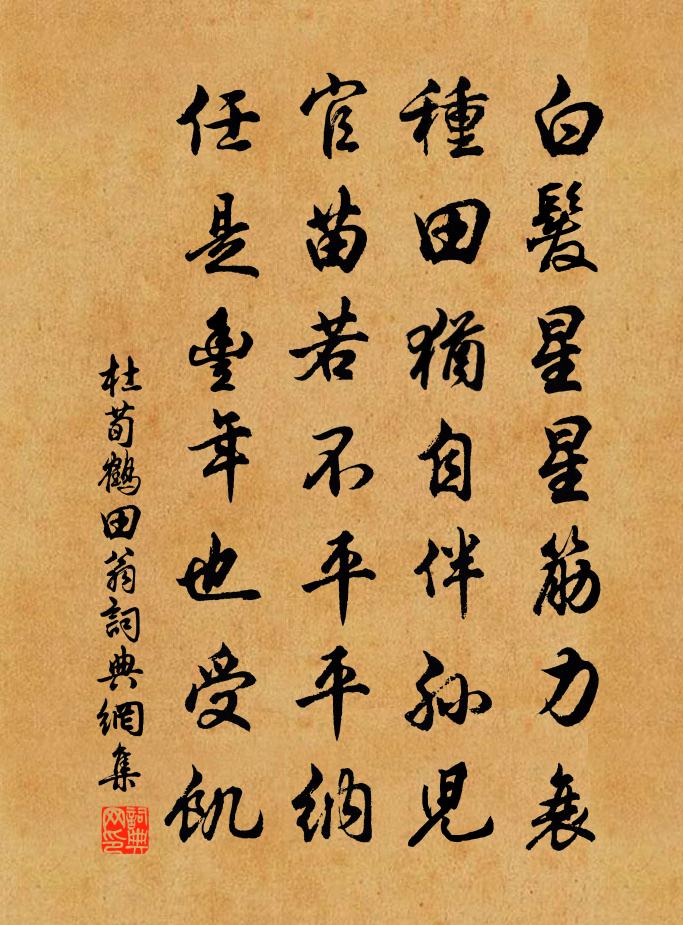 白髮星星筋力衰
種田猶自伴孫兒
官苗若不平平納
任是豐年也受飢
杜荀鶴田翁詞典網集
詞典網印